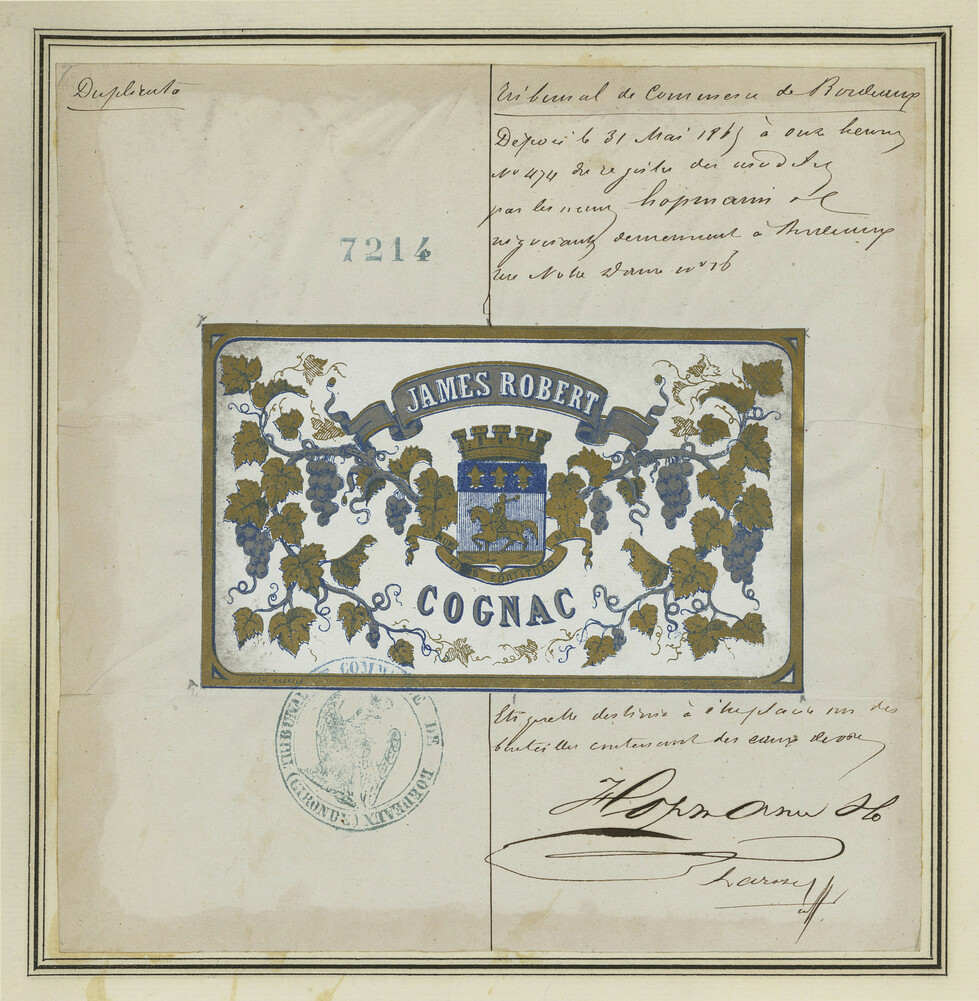 Duplicata
Tribunal de Commerce de Bordeaux
Déposé le 31 Mai 1865 à onze heures
No 474 du registre des modèles
par les sieurs hopmann et
négociants demeurant à Bordeaux
rue Notre Dame no 16
7214
JAMES ROBERT
FORTITUDO
COGNAC
TRIBUNAL DE COMMERCE DE BORDEAUX
(GIRONDE)
Etiquette destinée à être placée sur des
bouteilles contenant des eaux de vie
Hopmann